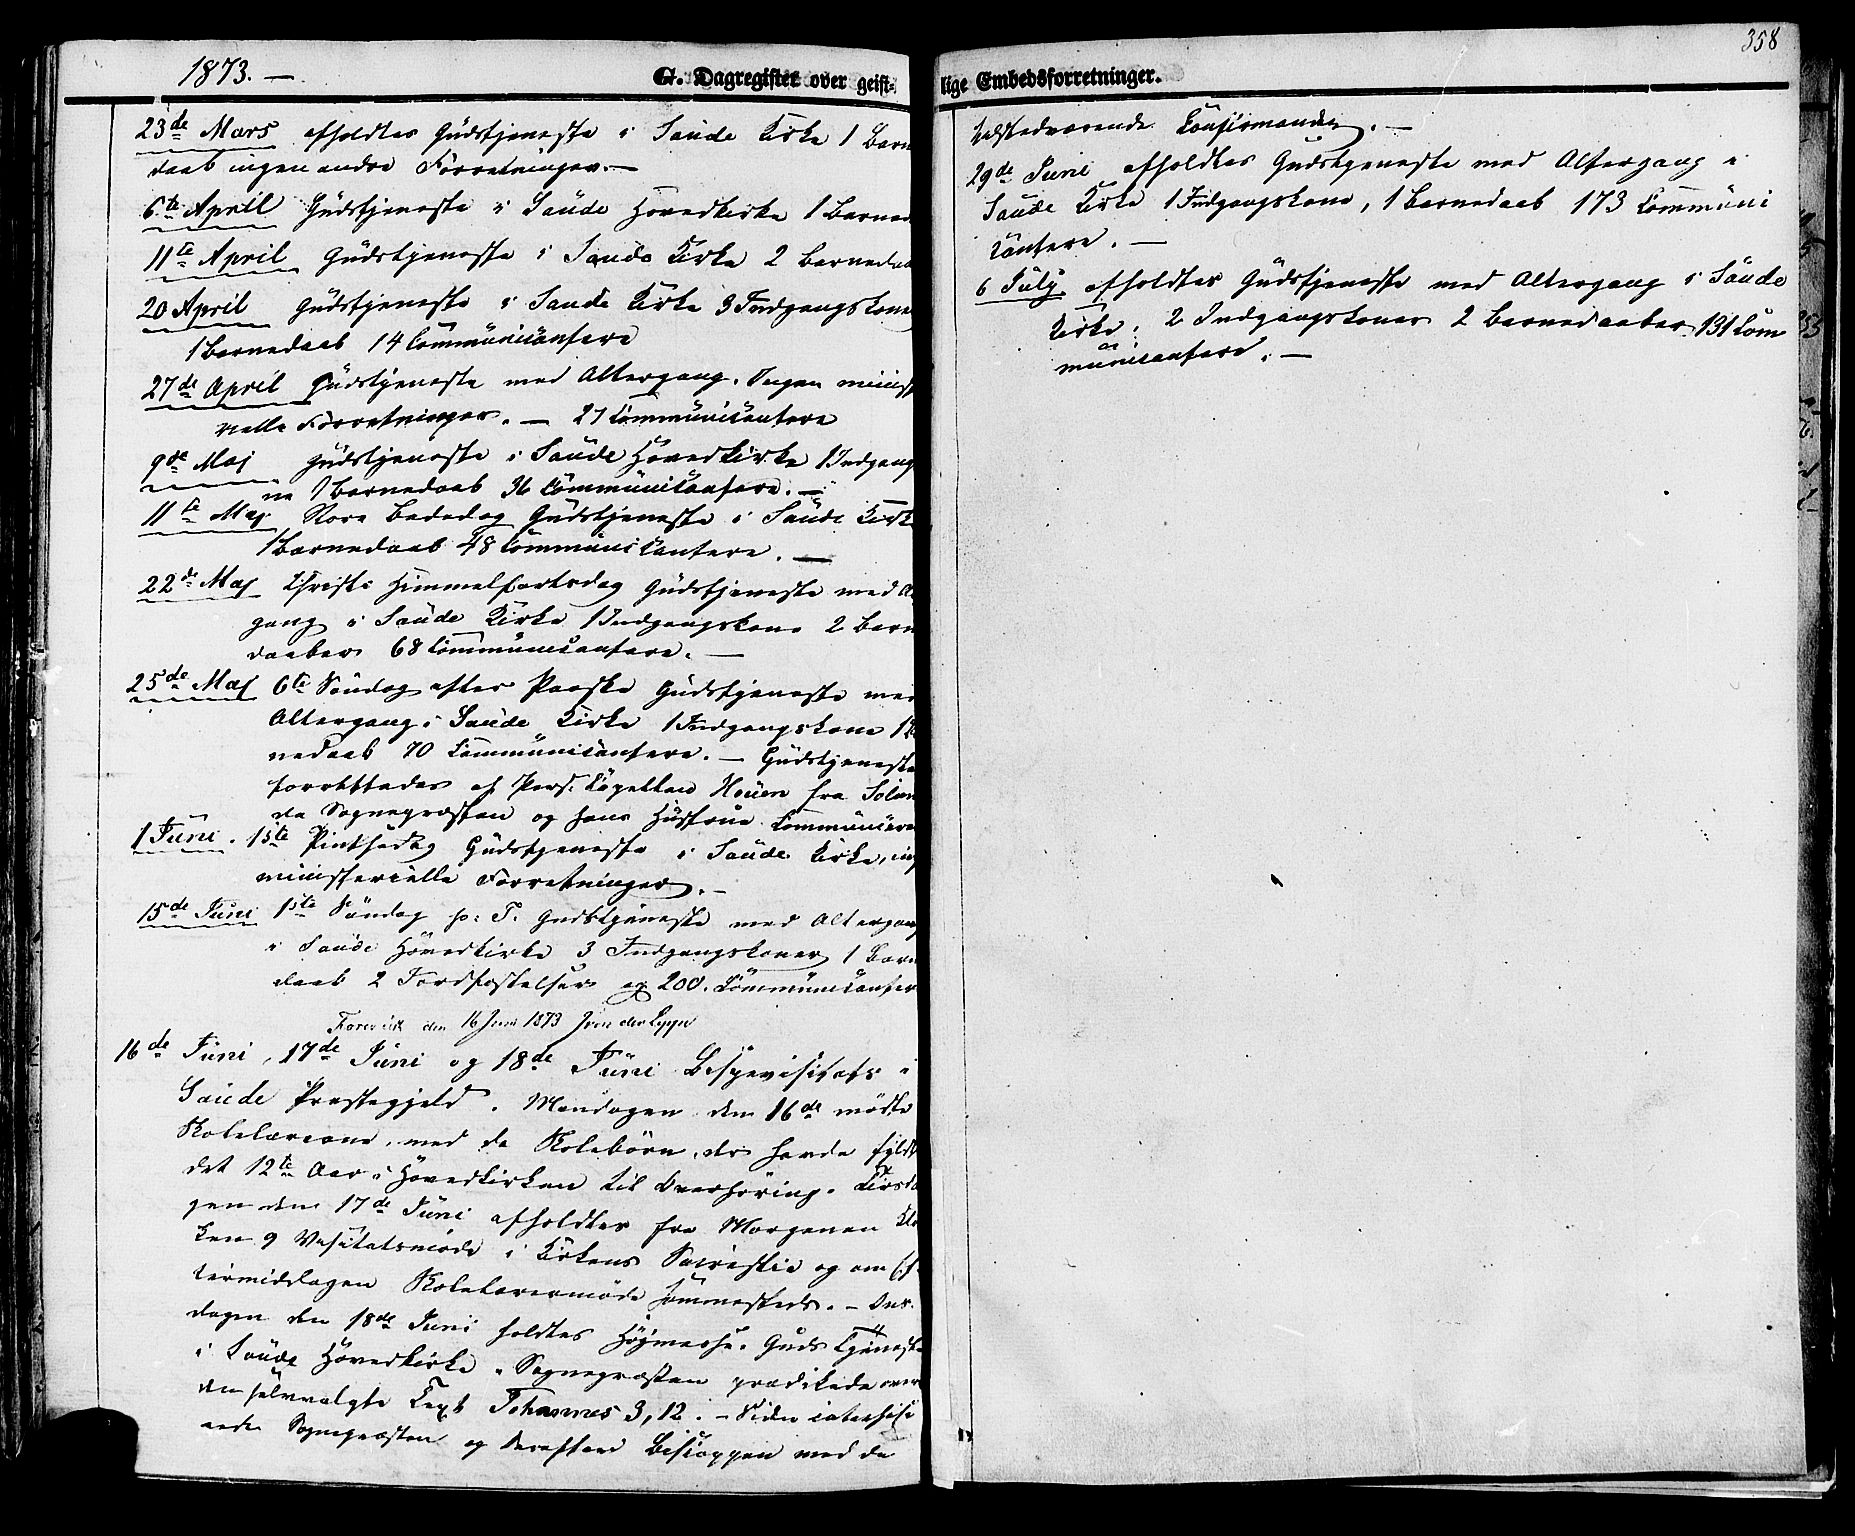 1873. —
G. Dagregister over geist-
23de Mars afholdtes Gudstjeneste i Saude Kirke 1 Barn
daab ingen andre Forretninger. —
6te April Gudstjeneste i Saude Hovedkirke 1 Barned
11te April Gudstjeneste i Saude Kirke 2 Barnedaa
20 April Gudstjeneste i Saude Kirke 3 Indgangskone
1 Barnedaab 14 Communicantere
27de April Gudstjeneste med Altergang. Ingen minist
rielle Forretninger. — 27 Communicantere
9de Maj Gudstjeneste i Saude Hovedkirke 1 Indgang
ne 1 Barnedaab 36 Communicantere. —
11te Maj Store Bededag Gudstjeneste i Saude Kirk
1 Barnedaab 48 Communicantere. —
22de Maj Christi Himmelfartsdag Gudstjeneste med A
gang i Saude Kirke 1 Indgangskone 2 Barn
daaber 68 Communicantere. —
25de Maj 6te Søndag efter Paaske Gudstjeneste med
Altergang i Saude Kirke 1 Indgangskone 1 B
nedaab 70 Communicantere. — Gudstjeneste
forrettedes af Pers. Capellan Houen fra
de Sognepræsten og hans Hustrue Communicere
1 Juni. 1ste Pintsedag Gudstjeneste i Saude Kirke, ing
ministerielle Forretninger. —
15de Juni 1ste Søndag p. T. Gudstjeneste med Altergang
i Saude Hovedkirke 3 Indgangskoner 1 Barn
daab 2 Jordfæstelser og 200. Communicanter
Foreviist den 16 Juni 1873
16de Juni, 17de Juni og 18de Juni Bispevisitats i
Saude Præstegjeld. Mandagen den 16de mødte
Skolelærerne med de Skolebørn, der havde fyldt
det 12te Aar i Hovedkirken til Overhøring. Tirsda
gen den 17de Juni afholdtes fra Morgenen Klo
ken 9 Visitatsmøde i Kirkens Sacristie og om Ef
termiddagen Skolelærermøde sammesteds. — Ons
dagen den 18de Juni holdtes Højmesse. Gudstjeneste
i Saude Hovedkirke. Sognepræsten prædikede over
den selvvalgte Text Johannes 3, 12. — Siden catechise
rede Sognepræsten og derefter Biskoppen med de
358
lige Embedsforretninger.
tilstedværende Confirmander. —
29de Juni afholdtes Gudstjeneste med Altergang i
Saude Kirke 1 Indgangskone, 1 Barnedaab 173 Communi
cantere. —
6 July afholdtes Gudstjeneste med Altergang i Saude
Kirke. 2 Indgangskoner 2 Barnedaaber 131 Com
municantere. —